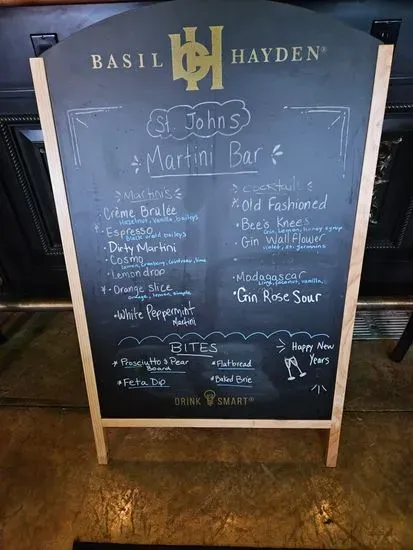 BASIL HAYDEN®
St. Johns
Martini Bar
Martinis
Crème Brûlée
Hazelnut, Vanilla, baileys
Espresso
Black vrald baileys
Dirty Martini
Cosmo
Lemon, Cranberry, Cointreau, lime
Lemon drop
Orange Slice
orange, lemon, simple
White Peppermint
Martini
Cocktails
Old Fashioned
Bee's Knees
Gin, Lemon, honey syrup
Gin Wall Flower
violet, st. germains
Madagascar
Lime, coconut, vanilla
Gin Rose Sour
BITES
Prosciutto & Pear
Board
Feta Dip
Flatbread
Baked Brie
Happy New
Years
DRINK SMART®